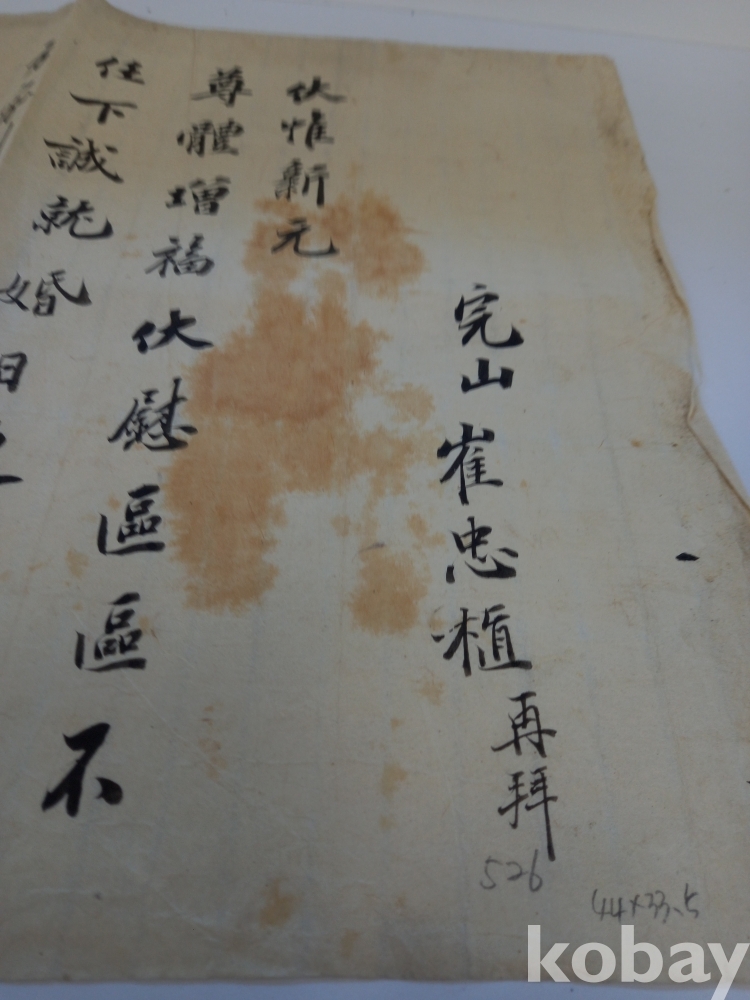 完山崔忠植再拜
伏惟新元
尊體增福伏慰區區不
任下誠就婚日
526
44×33.5
kobay